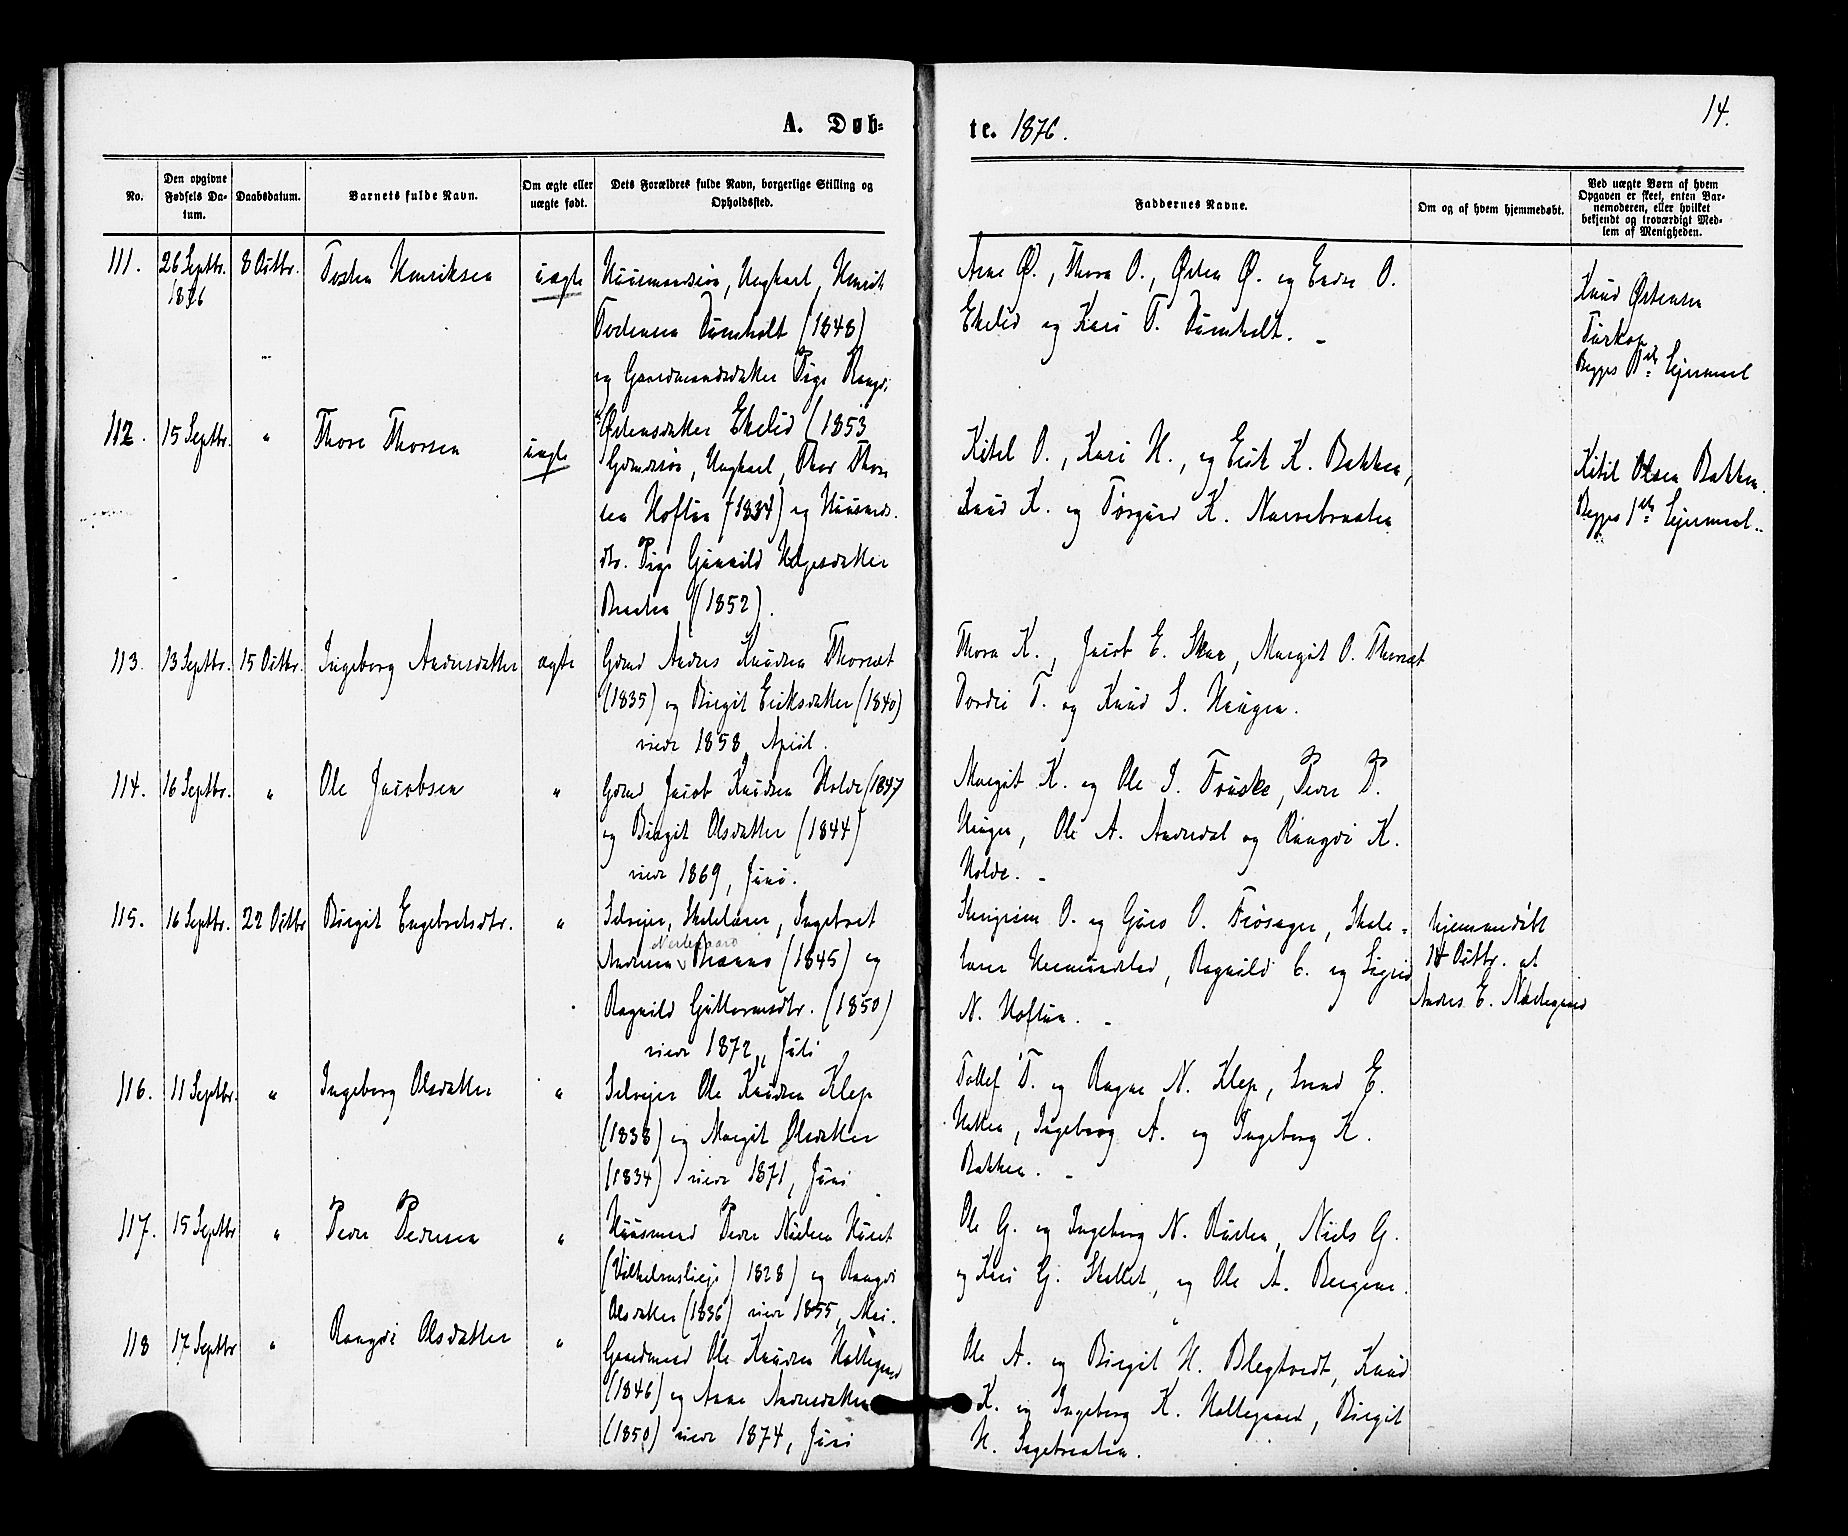 14.
A. Døb=
te. 1876.
No.
Den opgivne
Fødsels Da-
tum.
Daabsdatum.
Barnets fulde Navn.
Om ægte eller
uægte født.
Dets Forældres fulde Navn, borgerlige Stilling og
Opholdssted.
Faddernes Navne.
Om og af hvem hjemmedøbt.
Ved uægte Børn af hvem
Opgaven er skeet, enten Bar-
nemoderen, eller hvilket
bekjendt og troværdigt Med-
lem af Menigheden.
111.
26 Septbr.
1876
8 Octbr.
Tosten Henriksen
uægte
Huusmandssøn, Ungkarl, Henrik
Tostensen (1848)
og Gaardmandsdatter Pige Rangdi
Østensdatter Ekelid (1853
Arne Ø., Thora O., Østen Ø. og Endre O.
Ekelid og Kari T.
Knud Østensen
Begges 1ste Leiermaal
112.
15 Septbr.
"
Thore Thorsen
uægte
Gdmdssøn, Ungkarl, Thor Thor
sen Hoftun (1834) og Huusmds.
dtr. Pige Gunnild Helgesdatter
Braaten (1852).
Kitel O., Kari H., og Erik K. Bakken,
Knud K. og Torgund K. Narvebraaten
Kitil Olsen Bakken.
Begges 1ste Leiermaal.
113.
13 Septbr.
15 Octbr.
Ingeborg Andersdatter
ægte
Gdmd Anders Knudsen Thorset
(1835) og Birgit Eriksdatter (1840)
viede 1858 April.
Thora K., Jacob E. Skar, Margit O. Thorset
Dordei T. og Knud S. Haugen.
114.
16 Septbr.
"
Ole Jacobsen
"
Gdmd Jacob Knudsen Holde (1847
og Birgit Olsdatter (1844)
viede 1869, Juni.
Margit K. og Ole I. Fruske, Peder P.
Haugen, Ole A. Aadredal og Rangdi K.
Holde.
115.
16 Septbr.
22 Octbr
Birgit Engebretsdtr.
"
Selveier, Skolelærer, Ingebret
Nerdegaard
Andersen (1845) og
Ragnild Guttormsdtr. (1850)
viede 1872, Juli
O. og Guro O. Frøsager, Skole-
lærer Hermundstad, Ragnild C. og Sigrid
N. Hoftun.
hjemmedøbt
14 Octbr. af
Anders E. Nordegaard
116.
11 Septbr.
"
Ingeborg Olsdatter
"
Selveier Ole Knudsen Klep
(1838) og Margit Olsdatter
(1834) viede 1871, Juni
Tollef T. og Ragne N. Klep, Svend E.
Hatten, Ingeborg A. og Ingeborg K.
Bakken.
117.
15 Septbr
"
Peder Pedersen
"
Huusmand Peder Nielsen Huset
1828) og Rangdi
Olsdatter (1836) viede 1855, Mai.
Ole G. og Ingeborg N. Rusten, Niels G.
og Kari G. Skollet, og Ole A. Bergene.
118
17 Septbr
"
Rangdi Olsdatter
"
Gaardmand Ole Knudsen Hallegaard
(1846) og Anne Andersdatter
(1850) viede 1874, Juni
Ole A. og Birgit H. Blegtvedt, Knud
K. og Ingeborg K. Hallegaard, Birgit
H. Ingebraaten.